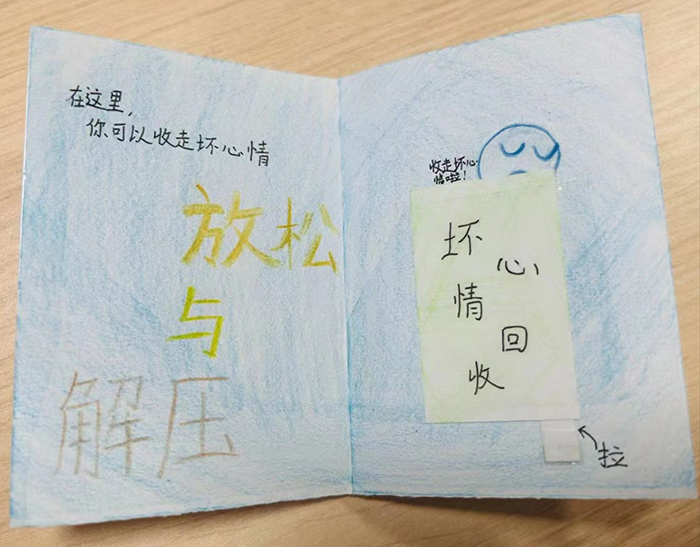 在这里,
你可以收走坏心情
放松
与
解压
收走坏心
情啦!
坏心
情回
收
拉